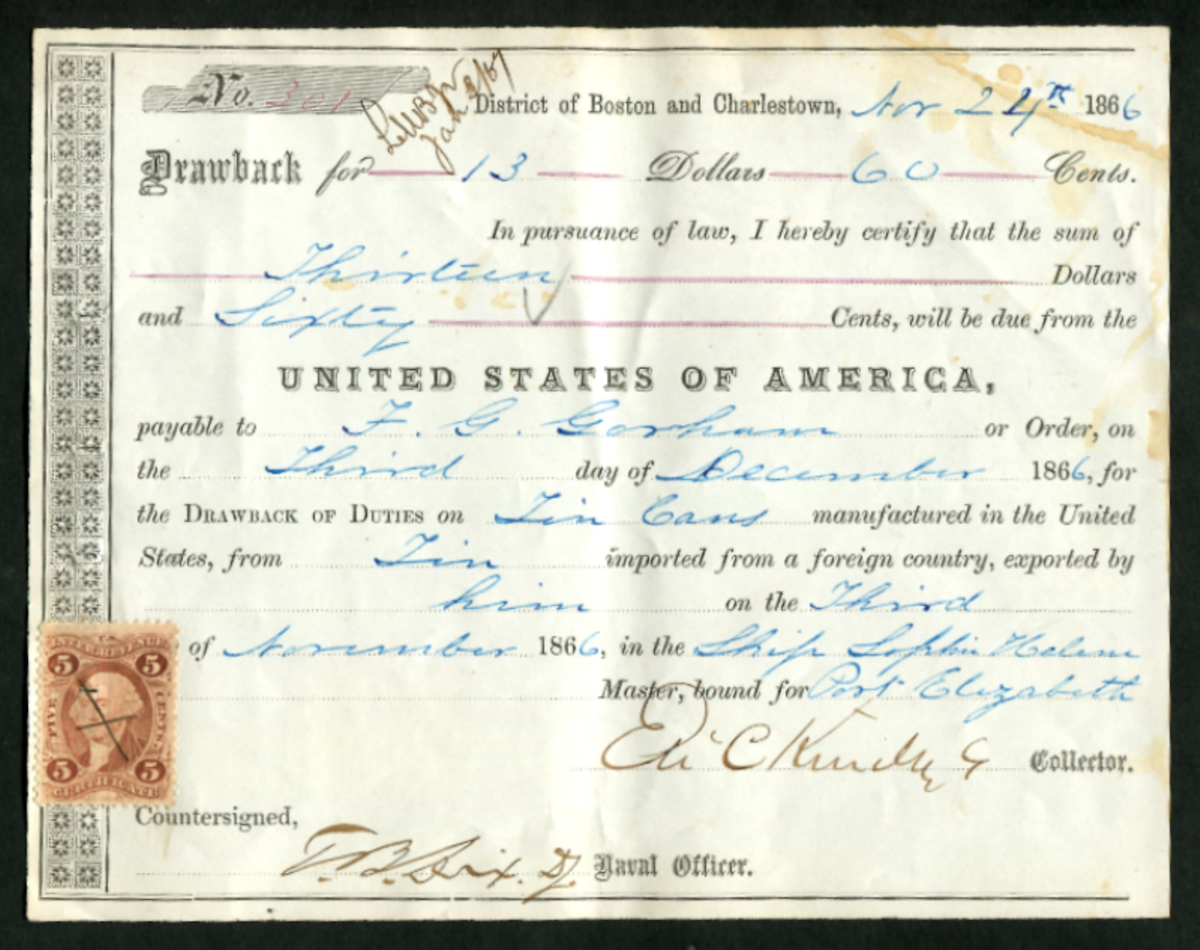 No. 301
District of Boston and Charlestown, Nov 24th 1866
Drawback for 13 Dollars 60 Cents.
In pursuance of law, I hereby certify that the sum of
Thirteen Dollars
and Sixty Cents, will be due from the
UNITED STATES OF AMERICA,
payable to F. G. Gorham or Order, on
the Third day of December 1866, for
the DRAWBACK OF DUTIES on Tin Cans manufactured in the United
States, from Tin imported from a foreign country, exported by
him on the Third
of November 1866, in the Ship Sophia Helene
Master, bound for Port Elizabeth
Collector.
Countersigned,
Naval Officer.
INTER. REVENUE
5 5
FIVE CENTS
5 5
CERTIFICATE